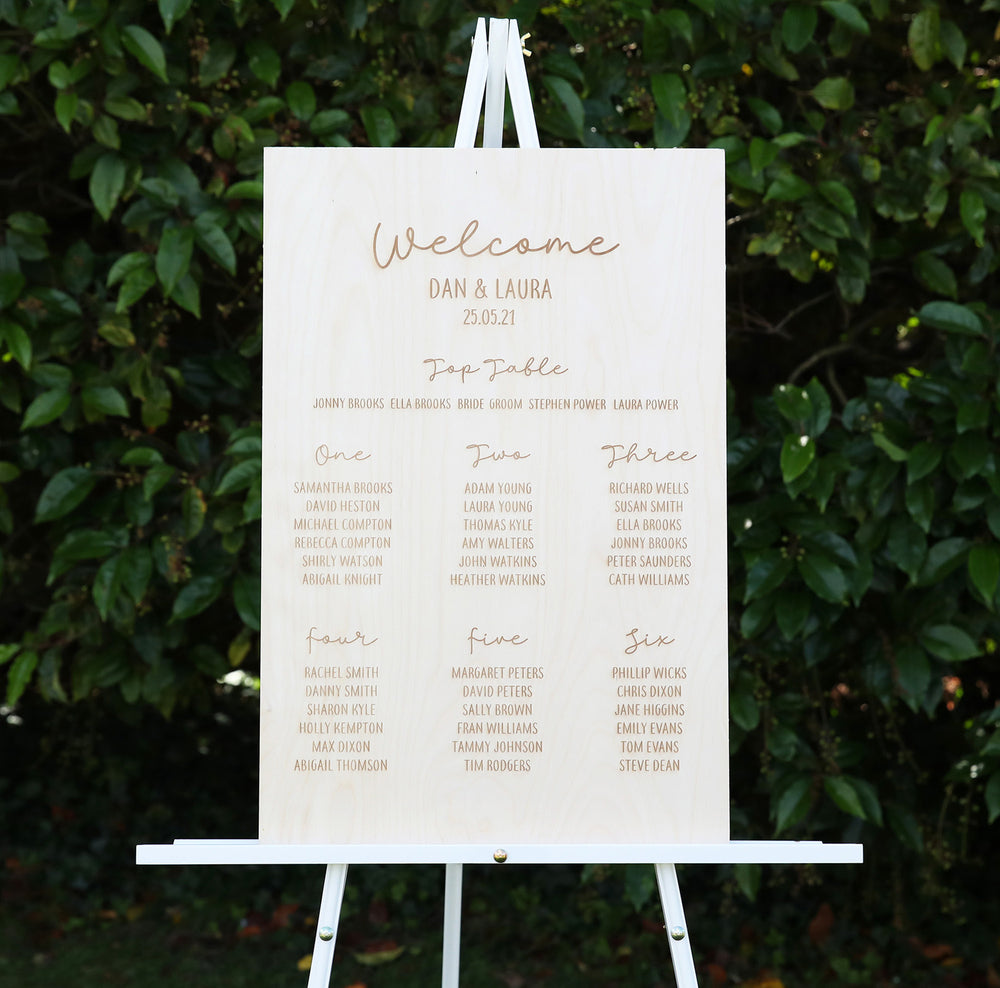 Welcome
DAN & LAURA
25.05.21
Top Table
JONNY BROOKS ELLA BROOKS BRIDE GROOM STEPHEN POWER LAURA POWER
One
SAMANTHA BROOKS
DAVID HESTON
MICHAEL COMPTON
REBECCA COMPTON
SHIRLY WATSON
ABIGAIL KNIGHT
Two
ADAM YOUNG
LAURA YOUNG
THOMAS KYLE
AMY WALTERS
JOHN WATKINS
HEATHER WATKINS
Three
RICHARD WELLS
SUSAN SMITH
ELLA BROOKS
JONNY BROOKS
PETER SAUNDERS
CATH WILLIAMS
Four
RACHEL SMITH
DANNY SMITH
SHARON KYLE
HOLLY KEMPTON
MAX DIXON
ABIGAIL THOMSON
Five
MARGARET PETERS
DAVID PETERS
SALLY BROWN
FRAN WILLIAMS
TAMMY JOHNSON
TIM RODGERS
Six
PHILLIP WICKS
CHRIS DIXON
JANE HIGGINS
EMILY EVANS
TOM EVANS
STEVE DEAN